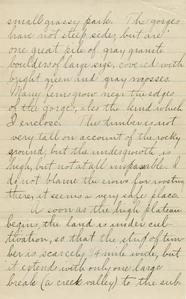 small grassy park. The gorges
have not steep sides, but are
one great pile of gray granite
boulders of large size, covered with
bright green and gray mosses.
Many ferns grow near the edges
of the gorges, also the kind which
I enclose. The timber is not
very tall on account of the rocky
ground, but the undergrowth is
high, but not at all impassable. I
do not blame the crows for roosting
there, it seems a very safe place.
As soon as the high plateau
begins the land is under cul-
tivation, so that the strip of tim-
ber is scarcely 1/4 mile wide, but
it extends with only one large
break (a creek valley) to the sub